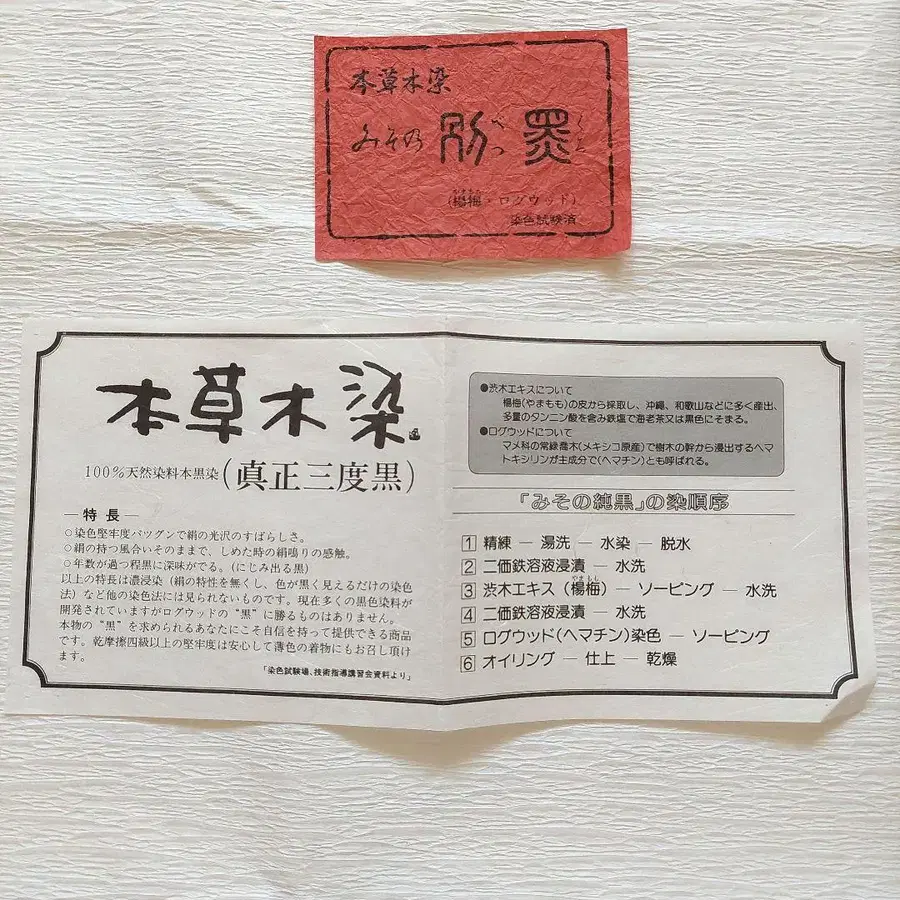 本草木染
みその 別墨
べつ くろ
やまもも
(楊梅・ログウッド)
染色試験済
本草木染
100%天然染料本黒染(眞正三度黒)
―特長―
○染色堅牢度バツグンで絹の光沢のすばらしさ。
○絹の持つ風合いそのままで、しめた時の絹鳴りの感触。
○年数が過つ程黒に深味がでる。(にじみ出る黒)
以上の特長は濃浸染(絹の特性を無くし、色が黒く見えるだけの染色
法)など他の染色法には見られないものです。現在多くの黒色染料が
開発されていますがログウッドの“黒”に勝るものはありません。
本物の“黒”を求められるあなたにこそ自信を持って提供できる商品
です。乾摩擦四級以上の堅牢度は安心して薄色の着物にもお召し頂け
ます。
「染色試験場、技術指導講習会資料より」
●渋木エキスについて
楊梅(やまもも)の皮から採取し、沖縄、和歌山などに多く産出、
多量のタンニン酸を含み鉄塩で海老茶又は黒色にそまる。
●ログウッドについて
マメ科の常緑喬木(メキシコ原産)で樹木の幹から浸出するヘマ
トキシリンが主成分で(ヘマチン)とも呼ばれる。
「みその純黒」の染順序
1 精練 ― 湯洗 ― 水染 ― 脱水
2 二価鉄溶液浸漬 ― 水洗
やまもも
3 渋木エキス(楊梅)― ソーピング ― 水洗
4 二価鉄溶液浸漬 ― 水洗
5 ログウッド(ヘマチン)染色 ― ソーピング
6 オイリング ― 仕上 ― 乾燥